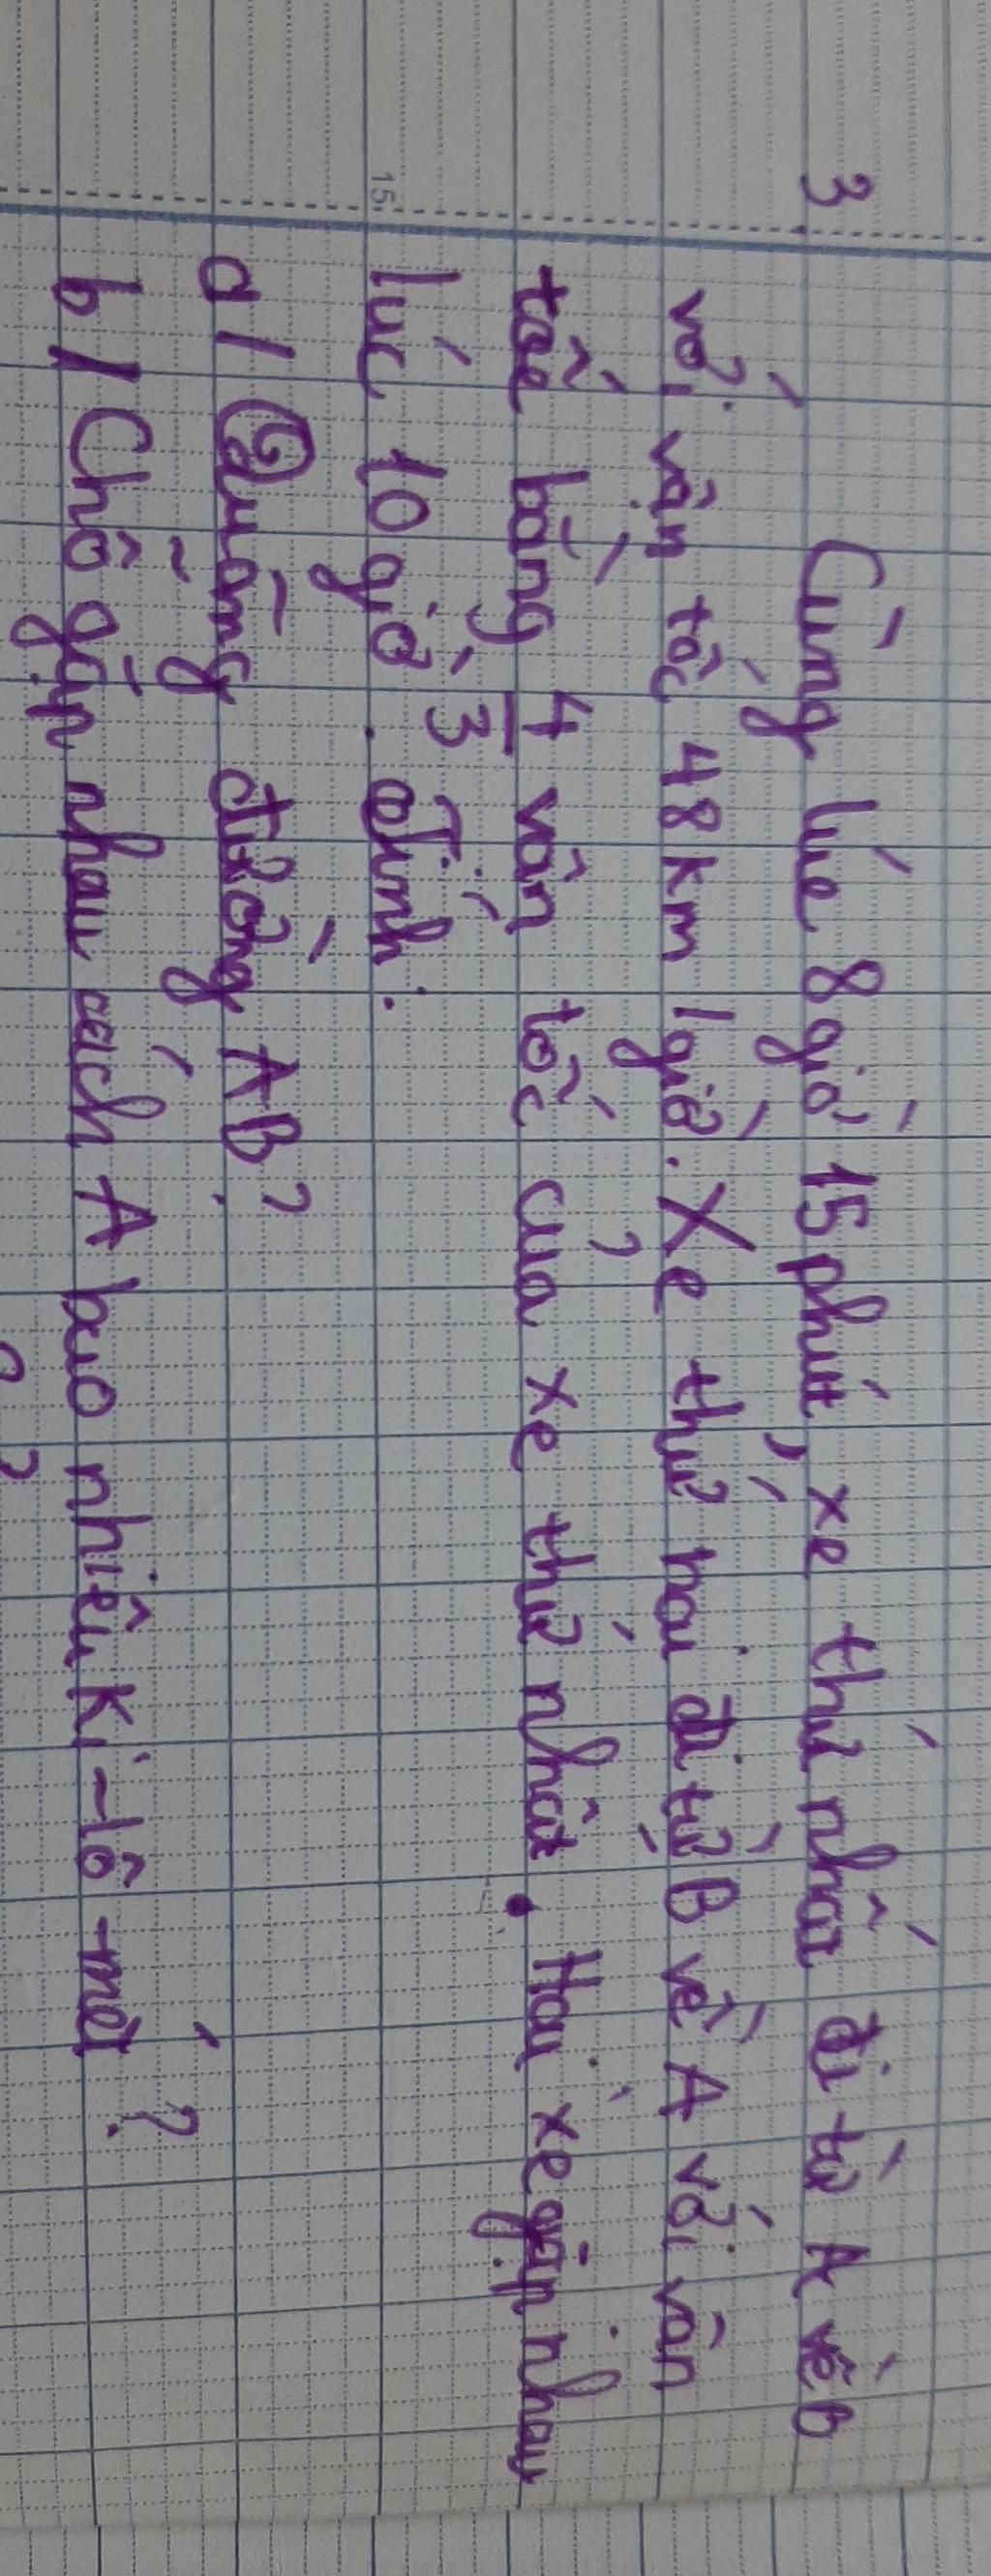 3 Cùng lúc 8 giờ 15 phút, xe thứ nhất đi từ A về B
với vận tốc 48 km /giờ. Xe thứ hai đi từ B về A với vận
tốc bằng 4/3 vận tốc của xe thứ nhất. Hai xe gặp nhau
15 lúc 10 giờ. Tính:
a/ Quãng đường AB?
b/ Chỗ gặp nhau cách A bao nhiêu ki-lô-mét?